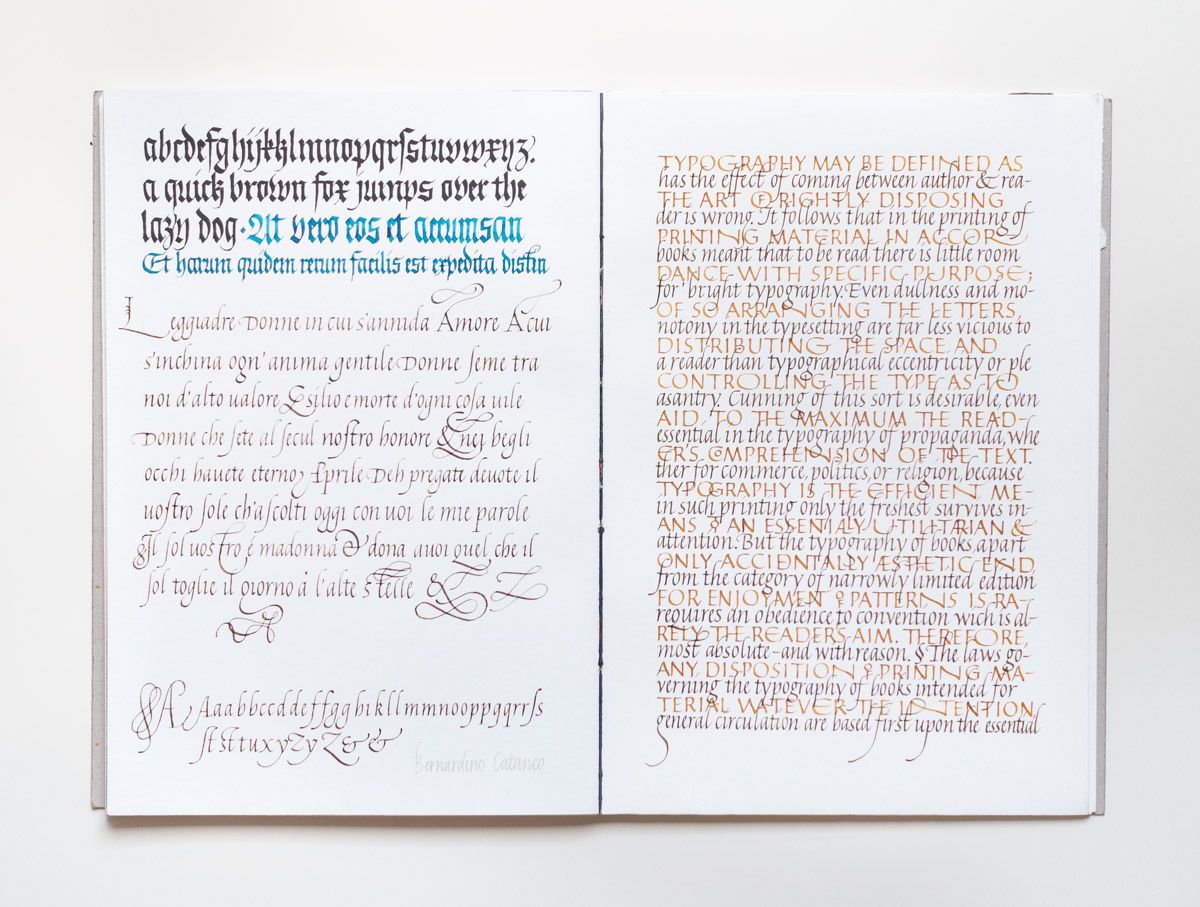 abcdefghijklmnopqrſstuvwxyz.
a quick brown fox jumps over the
lazy dog·At vero eos et accumsan
Et harum quidem rerum facilis est expedita distin
Leggiadre Donne in cui s'annida Amore A cui
s'inchina ogn'anima gentile Donne ſeme tra
noi d'alto ualore Eſilio e morte d'ogni coſa uile
Donne che ſete al ſecul noſtro honore & nei begli
occhi hauete eterno Aprile Deh pregate deuote il
uoſtro ſole ch'aſcolti oggi con uoi le mie parole
Il ſol uostro è madonna & dona a uoi quel che il
ſol toglie il giorno à l'alte stelle & Z
A
A Aaabbccddeffgghikllmmnooppqqrrſs
ſt st tuxyzyZ&&
Bernardino Cataneo
TYPOGRAPHY MAY BE DEFINED AS
has the effect of coming between author & rea-
THE ART OF RIGHTLY DISPOSING
der is wrong. It follows that in the printing of
PRINTING MATERIAL IN ACCOR
books meant that to be read there is little room
DANCE WITH SPECIFIC PURPOSE;
for 'bright typography. Even dullness and mo-
OF SO ARRANGING THE LETTERS,
notony in the typesetting are far less vicious to
DISTRIBUTING THE SPACE AND
a reader than typographical eccentricity or ple
CONTROLLING THE TYPE AS TO
asantry. Cunning of this sort is desirable, even
AID TO THE MAXIMUM THE READ-
essential in the typography of propaganda, whe
ER'S COMPREHENSION OF THE TEXT.
ther for commerce, politics, or religion, because
TYPOGRAPHY IS THE EFFICIENT ME-
in such printing only the freshest survives in-
ANS OF AN ESSENIALLY UTILITARIAN &
attention. But the typography of books, apart
ONLY ACCIDNTALLY ÆSTHETIC END,
from the category of narrowly limited edition
FOR ENJOYMENT OF PATTERNS IS RA-
requires an obedience to convention wich is al-
RELY THE READERS AIM. THEREFORE,
most absolute – and with reason. § The laws go-
ANY DISPOSITION OF PRINTING MA-
verning the typography of books intended for
TERIAL WATEVER THE INTENTION,
general circulation are based first upon the essential